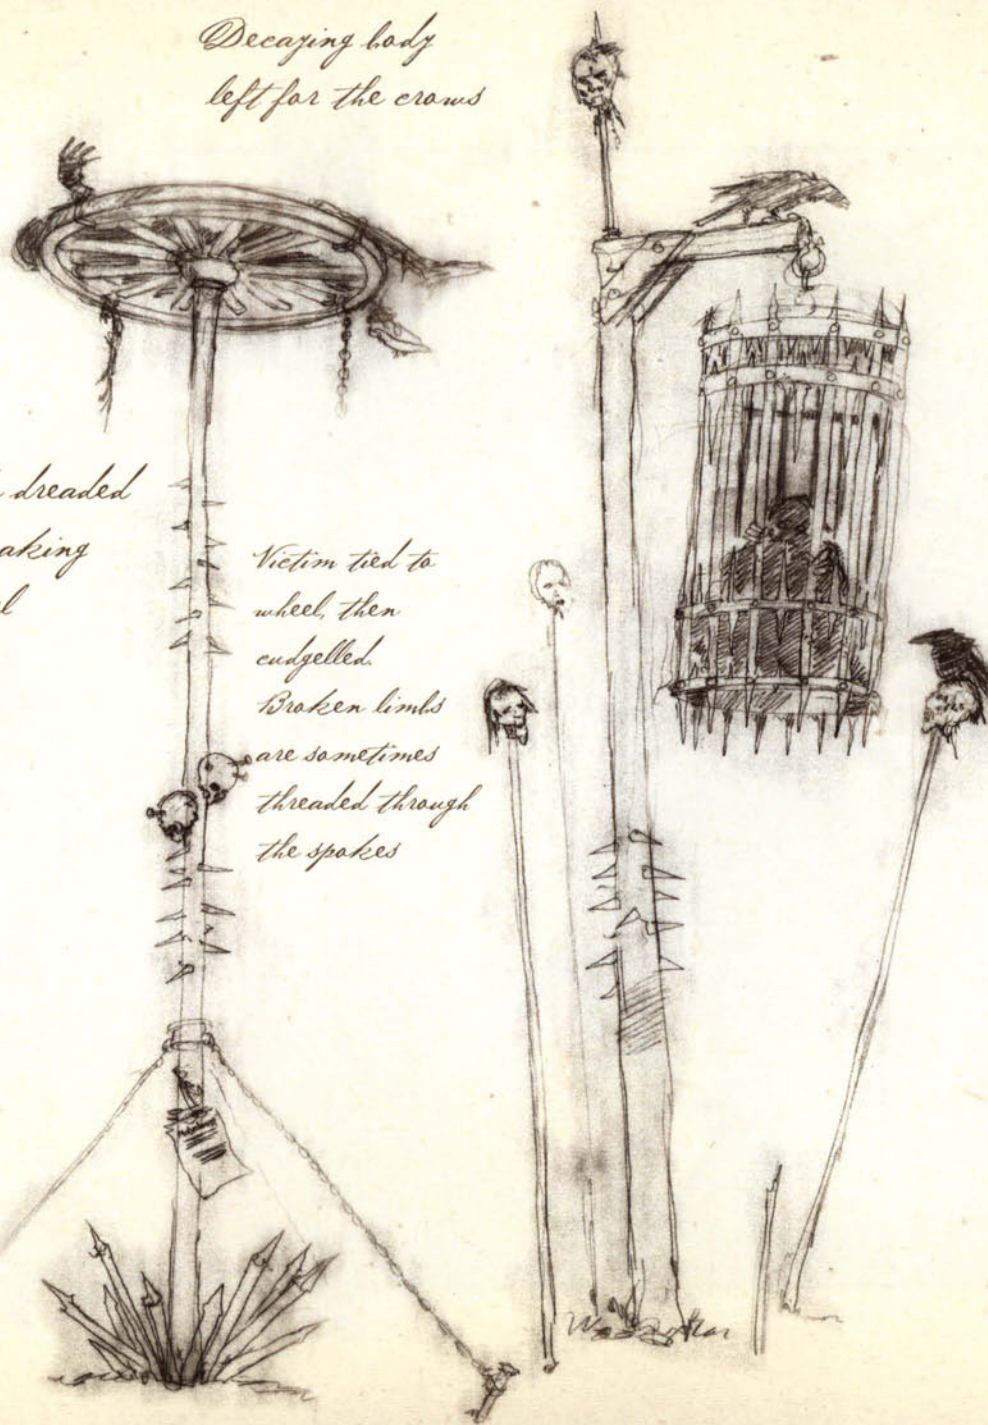 Decaying body
left for the crows
dreaded
aking
l
Victim tied to
wheel, then
cudgelled.
Broken limbs
are sometimes
threaded through
the spokes